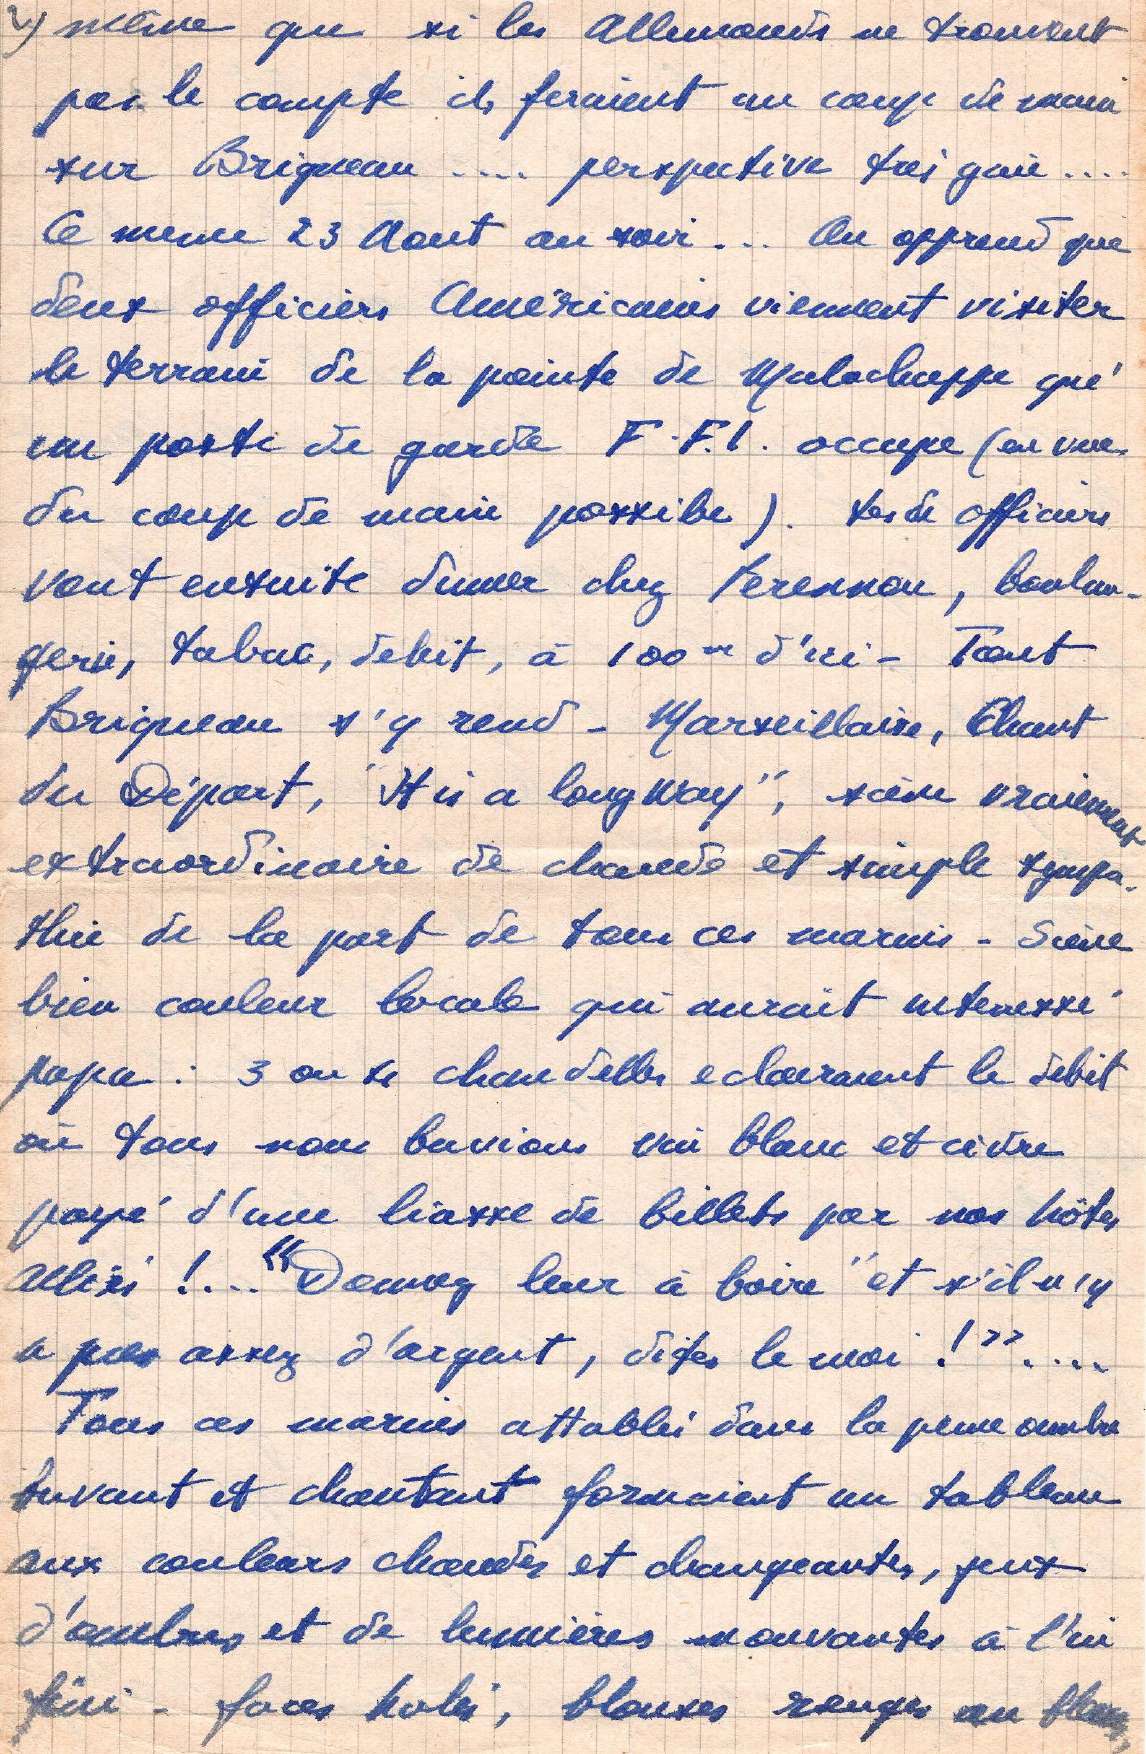 2) même que si les Allemands ne trouvent
pas le compte ils feraient un coup de main
sur Brigneau .... perspective très gaie ....
Ce meme 23 Aout au soir ... On apprend que
deux officiers Américains viennent visiter
le terrain de la pointe de Malachappe qu'
un poste de garde F.F.I. occupe (en vue
du coup de main possible). officiers
vont ensuite diner chez Perennou, boulan-
gerie, tabac, debit, à 100m d'ici - Tout
Brigneau s'y rend - Marseillaise, Chant
du Départ, "It is a long Way", scène vraiment
extraordinaire de chaude et simple sympa-
thie de la part de tous ces marins - Scène
bien couleur locale qui aurait interessé
papa : 3 ou 4 chandelles eclairaient le debit
où tous nous buvions vin blanc et cidre
payé d'une liasse de billets par nos hôtes
Alliés !... "Donnez leur à boire" et s'il n'y
a pas assez d'argent, dites le moi !" ....
Tous ces marins attablés dans la penombre
buvant et chantant formaient un tableau
aux couleurs chaudes et changeantes, jeux
d'ombres et de lumières mouvantes à l'in
fini - faces halés, blouses rouges ou bleues,